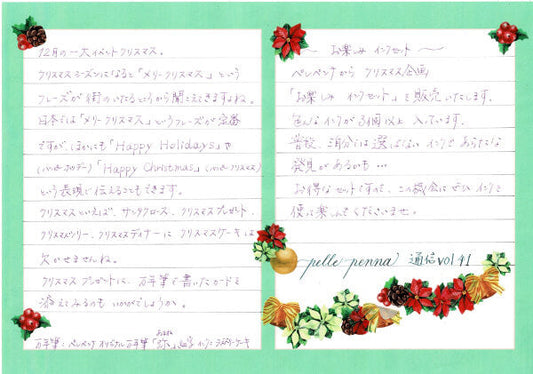 12月の一大イベントクリスマス。
クリスマスシーズンになると「メリークリスマス」という
フレーズが街のいたるところから聞こえてきますよね。
日本では「メリークリスマス」というフレーズが定番
ですが、ほかにも「Happy Holidays」や
「Happy Christmas」
という表現で伝えることもできます。
クリスマスといえば、サンタクロース、クリスマスプレゼント、
クリスマスツリー、クリスマスディナーに クリスマスケーキは
欠かせませんね。
クリスマス プレゼントに、万年筆で書いたカードを
添えてみるのも いかがでしょうか。
万年筆：ペンペンナ オリジナル万年筆
〜 お楽しみ インクセット 〜
ペンペンナから クリスマス企画
「お楽しみ インクセット」を販売いたします。
色んなインクが3個以上 入っています。
普段、自分では選ばない インクで あらたな
発見があるかも…
お得なセットですので、この機会に ぜひ インクを
使って楽しんでくださいませ。
pelle penna 通信 vol.41